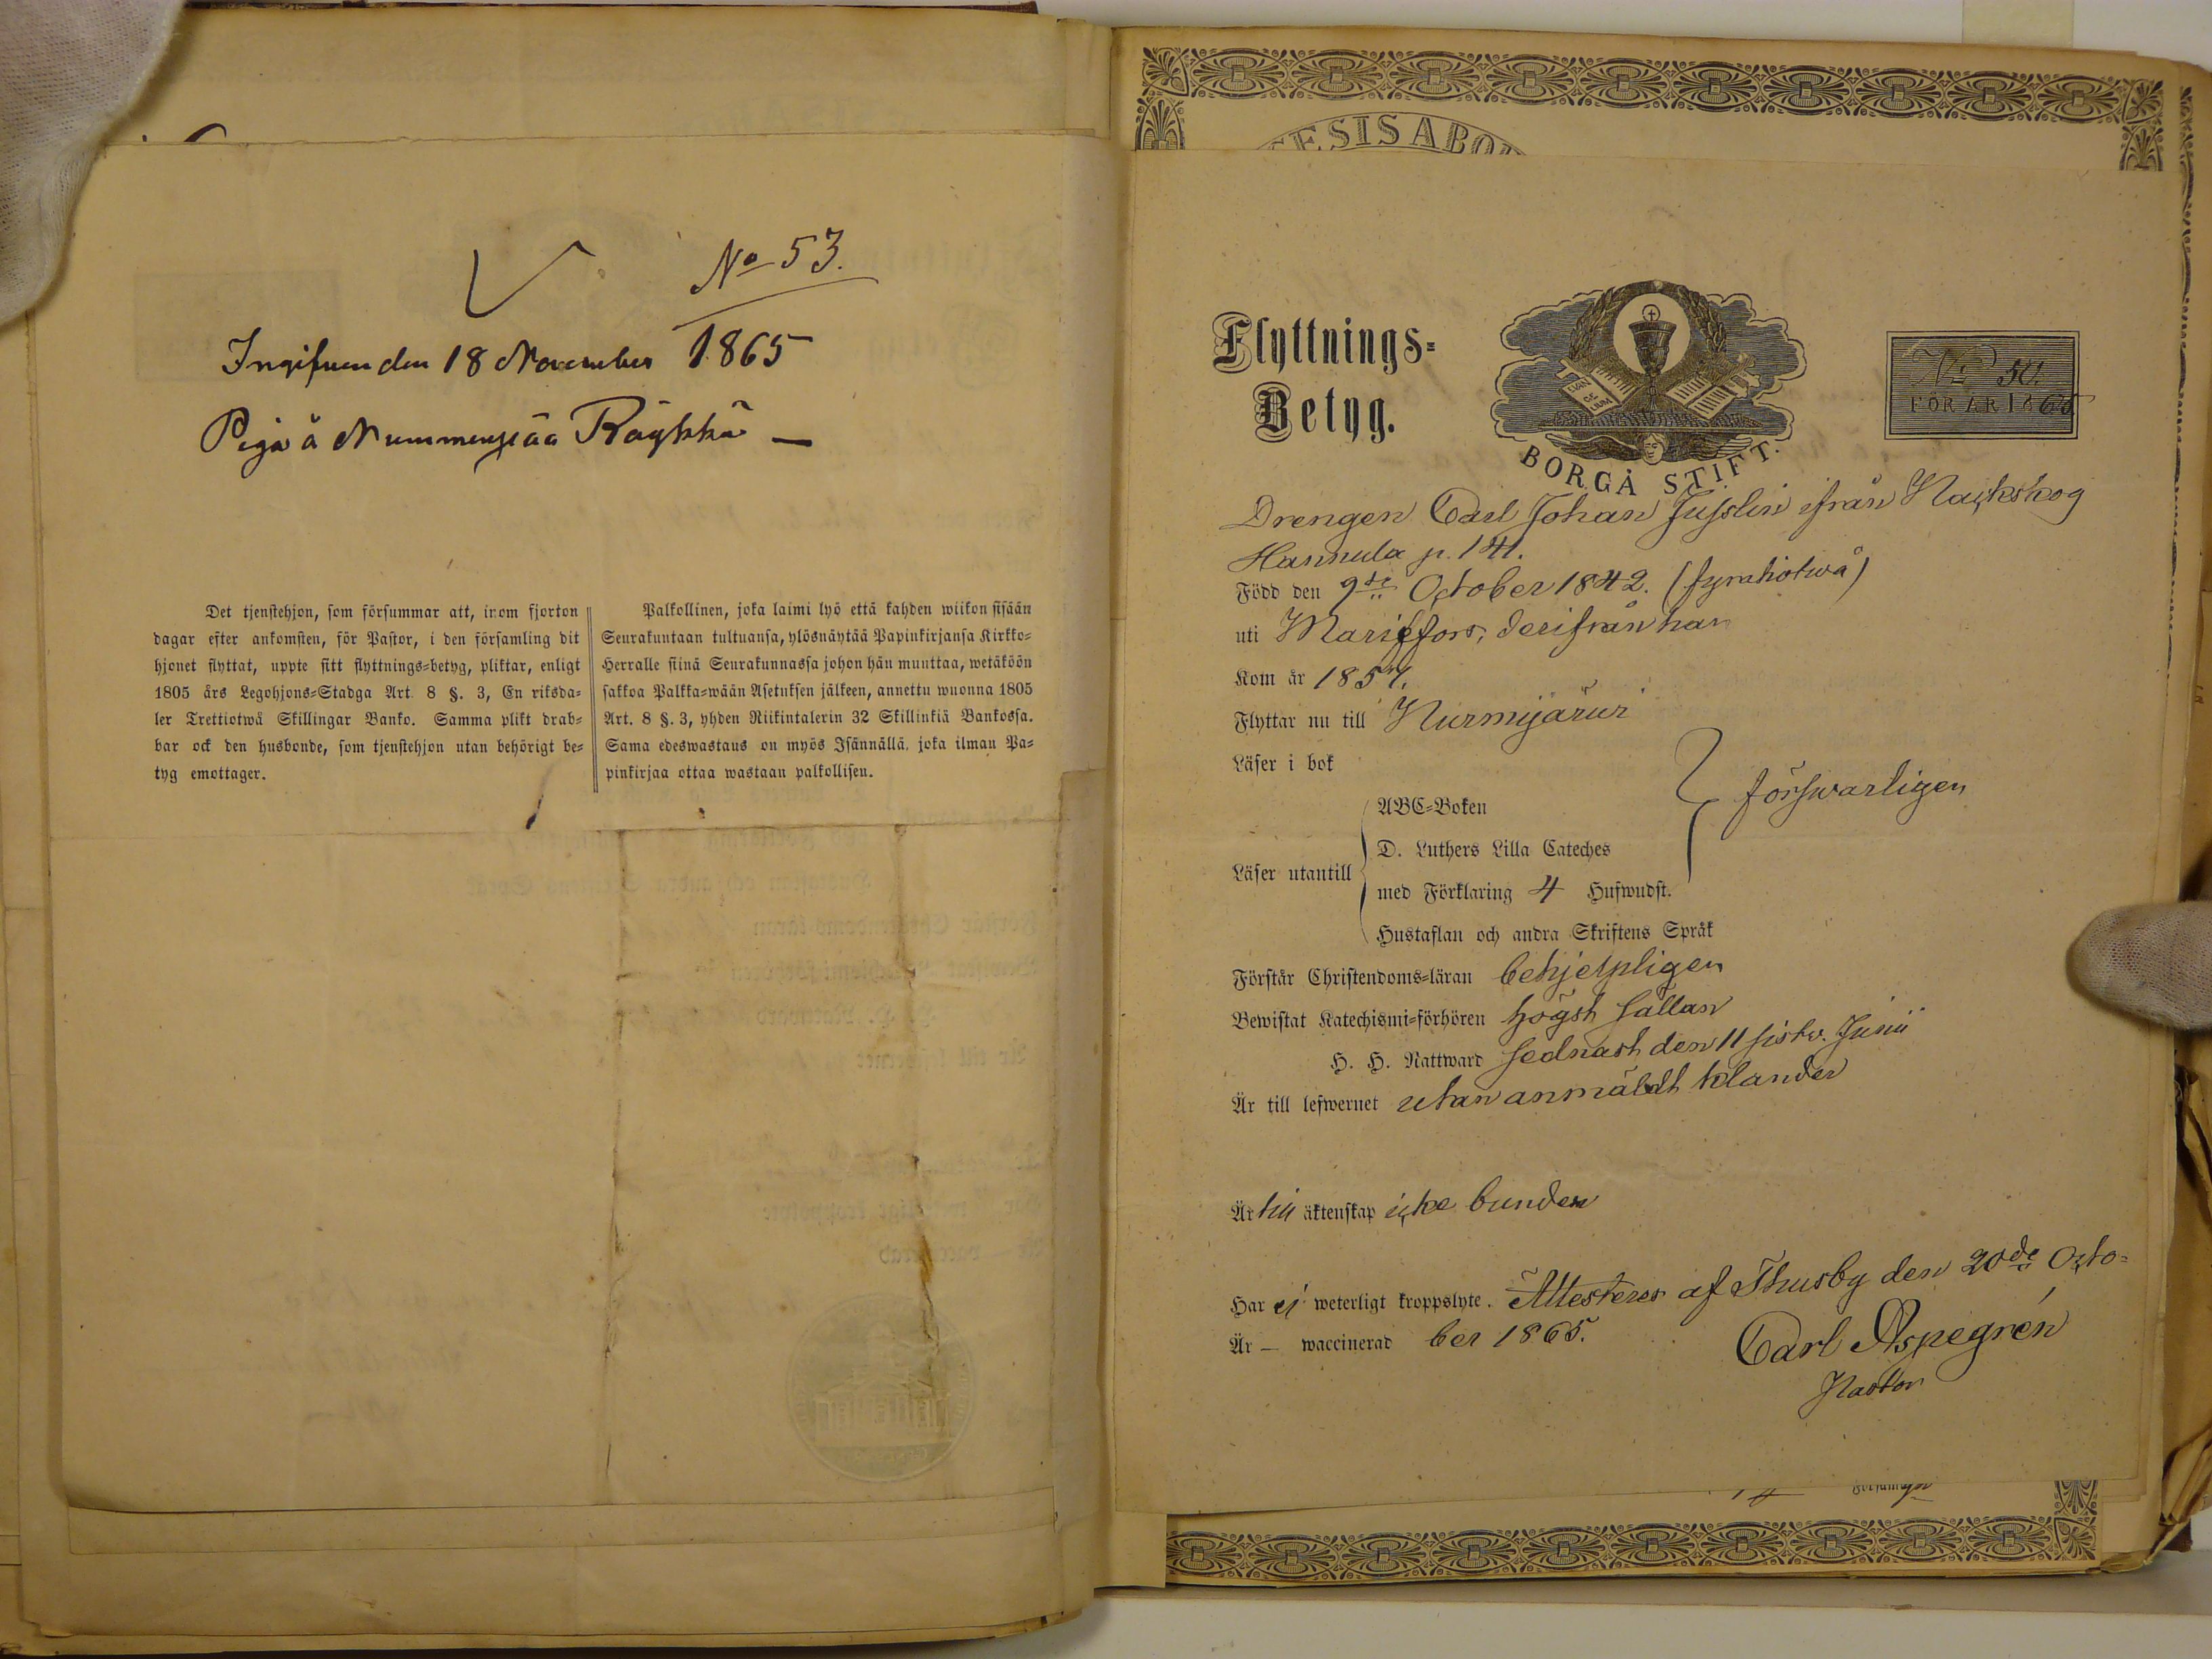 No 53.
Ingifven den 18 November 1865
Piga å Nummenpää Räykkä —
Det tjenstehjon, som försummar att, inom fjorton
dagar efter ankomsten, för Pastor, i den församling dit
hjonet flyttat, uppte sitt flyttnings=betyg, pliktar, enligt
1805 års Legohjons=Stadga Art. 8 §. 3, En riksda=
ler Trettiotwå Skillingar Banko. Samma plikt drab=
bar ock den husbonde, som tjenstehjon utan behörigt be=
tyg emottager.
Palkollinen, joka laimi lyö että kahden wiikon sisään
Seurakuntaan tultuansa, ylösnäytää Papinkirjansa Kirkko=
Herralle siinä Seurakunnassa johon hän muuttaa, wetäköön
sakkoa Palkka=wään Asetuksen jälkeen, annettu wuonna 1805
Art. 8 §. 3, yhden Riikintalerin 32 Skillinkiä Bankossa.
Sama edeswastaus on myös Isännällä, joka ilman Pa=
pinkirjaa ottaa wastaan palkollisen.
ESIS ABO
Flyttnings=
Betyg.
EVAN
GE
LIUM
BORGÅ STIFT.
No 50.
FÖR ÅR 1865
Drengen Carl Johan Jusslin ifrån Nackskog
Hannula p. 141.
Född den 9de October 1842. (fyratiotwå)
uti Mariefors, derifrån han
Kom år 1857.
Flyttar nu till Nurmijärvi
Läser i bok
ABC=Boken
D. Luthers Lilla Cateches
Läser utantill
med Förklaring 4 Hufwudst.
försvarligen
Hustaflan och andra Skriftens Språk
Förstår Christendoms=läran behjelpligen
Bewistat Katechismi=förhören högst sällan
H. H. Nattward sednast den 11 sistv. Junii
Är till lefwernet utan anmäldt klander
Är till äktenskap icke bunden
Har ej weterligt kroppslyte. Attesteres af Thusby den 20de Octo=
Är — waccinerad ber 1865.
Carl Aspegrén
Pastor